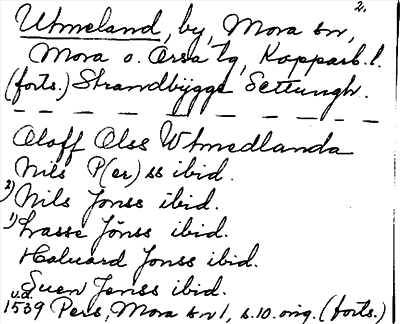 2.
Utmeland, by, Mora sn,
Mora o. Orsa tg, Kopparb. l.
(forts.) Strandbygge Settungh.
Oloff Olss Wtmedlanda
Nils P(er)ss ibid.
2) Nils Jonss ibid.
1) Lasse Jönss ibid.
Haluard Jonss ibid.
Suen Jenss ibid.
u.å.
1539 Pers, Mora sn 1, s. 10. orig. (forts.)